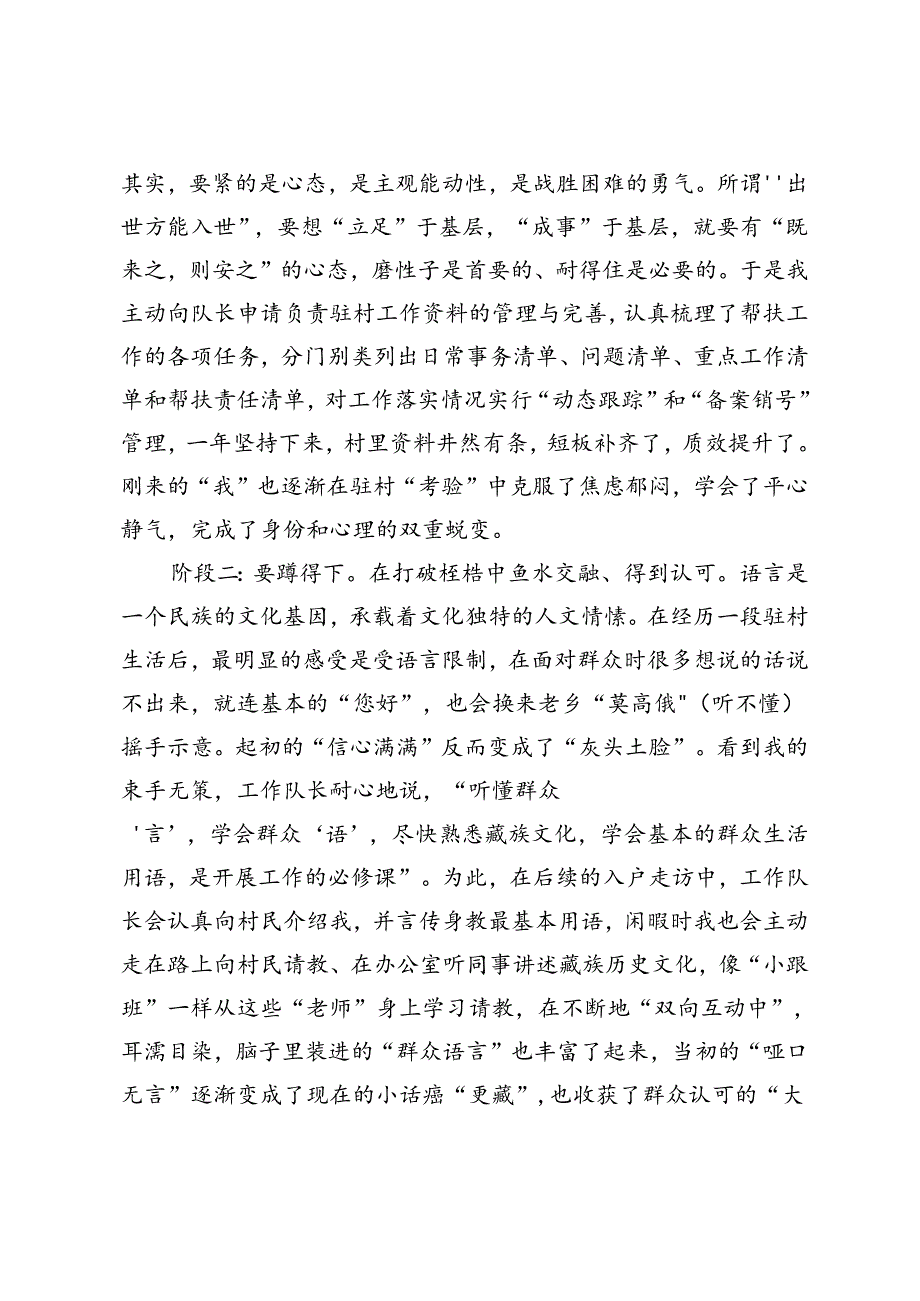 其实，要紧的是心态，是主观能动性，是战胜困难的勇气。所谓''出
世方能入世”，要想“立足”于基层，“成事”于基层，就要有“既
来之，则安之”的心态，磨性子是首要的、耐得住是必要的。于是我
主动向队长申请负责驻村工作资料的管理与完善，认真梳理了帮扶工
作的各项任务，分门别类列出日常事务清单、问题清单、重点工作清
单和帮扶责任清单，对工作落实情况实行“动态跟踪”和“备案销号”
管理，一年坚持下来，村里资料井然有条，短板补齐了，质效提升了。
刚来的“我”也逐渐在驻村“考验”中克服了焦虑郁闷，学会了平心
静气，完成了身份和心理的双重蜕变。
阶段二：要蹲得下。在打破桎梏中鱼水交融、得到认可。语言是
一个民族的文化基因，承载着文化独特的人文情愫。在经历一段驻村
生活后，最明显的感受是受语言限制，在面对群众时很多想说的话说
不出来，就连基本的“您好”，也会换来老乡“莫高俄"（听不懂）
摇手示意。起初的“信心满满”反而变成了“灰头土脸”。看到我的
束手无策，工作队长耐心地说，“听懂群众
'言’，学会群众‘语’，尽快熟悉藏族文化，学会基本的群众生活
用语，是开展工作的必修课”。为此，在后续的入户走访中，工作队
长会认真向村民介绍我，并言传身教最基本用语，闲暇时我也会主动
走在路上向村民请教、在办公室听同事讲述藏族历史文化，像“小跟
班”一样从这些“老师”身上学习请教，在不断地“双向互动中”，
耳濡目染，脑子里装进的“群众语言”也丰富了起来，当初的“哑口
无言”逐渐变成了现在的小话痨“更藏”,也收获了群众认可的“大